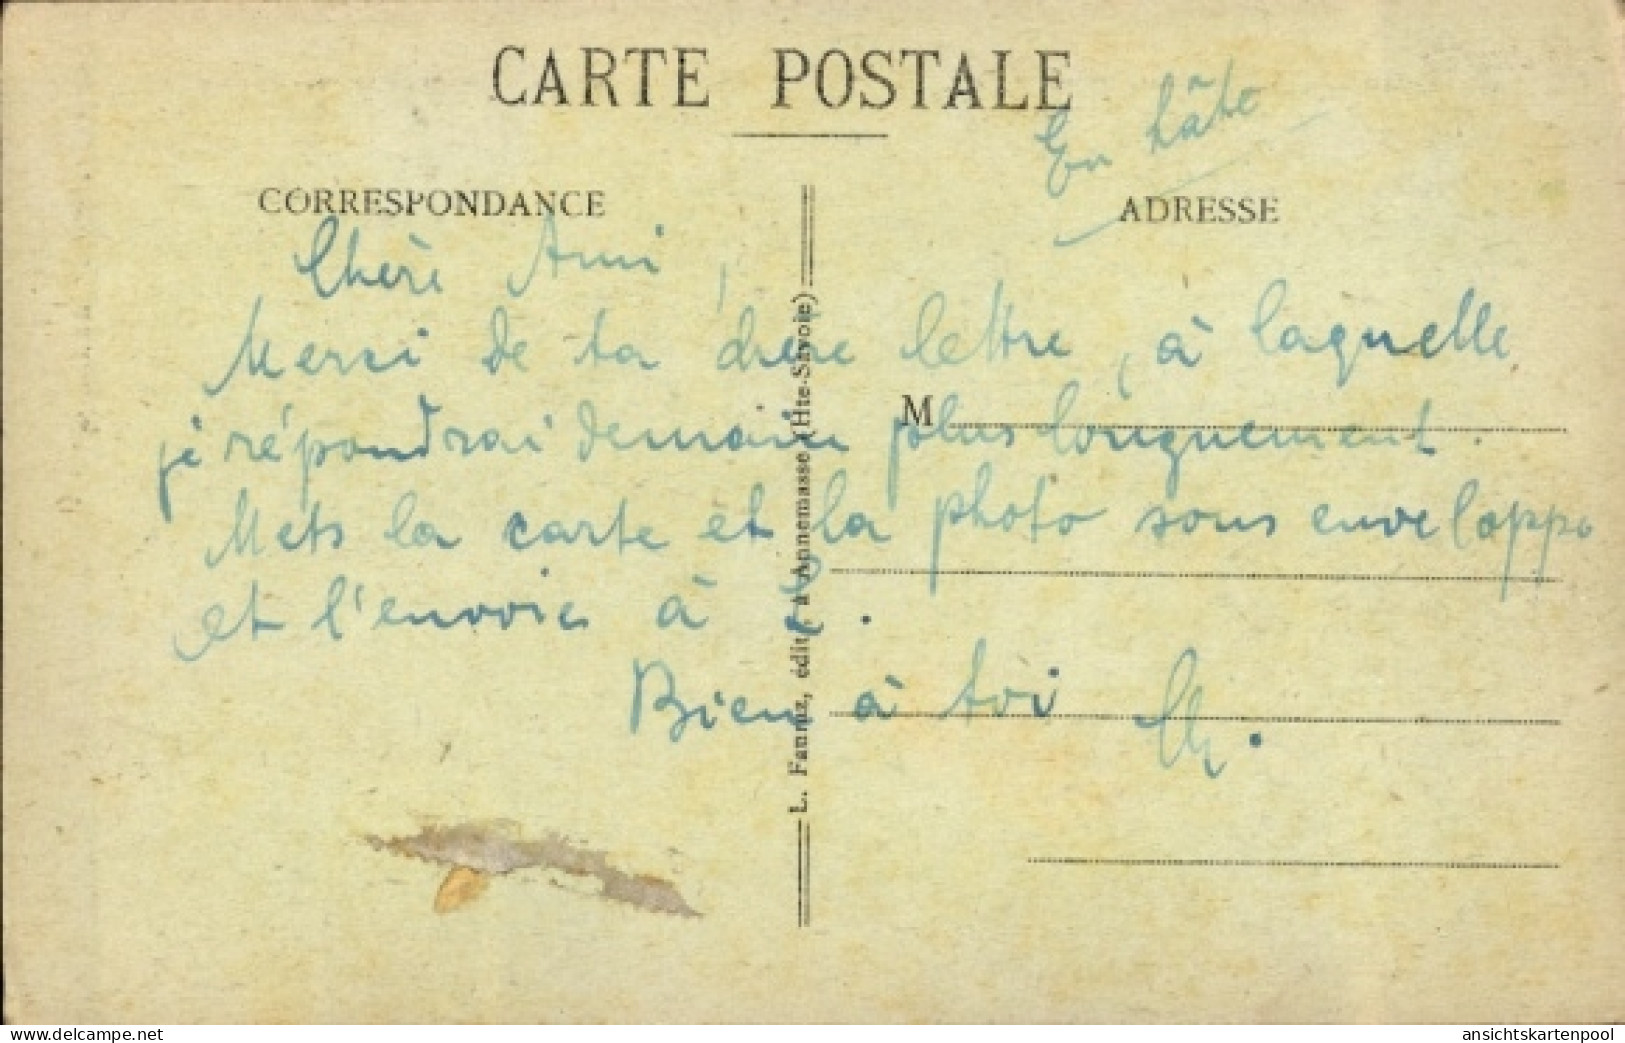 CARTE POSTALE
En hâte
CORRESPONDANCE
ADRESSE
Chère Ami,
Merci de ta chère lettre, à laquelle
je répondrai demain plus longuement.
M
Mets la carte et la photo sous enveloppe
et l'envoies à
Bien à toi
L. Fauraz, édit., à Annemasse (Hte-Savoie)
www.delcampe.net
ansichtskartenpool